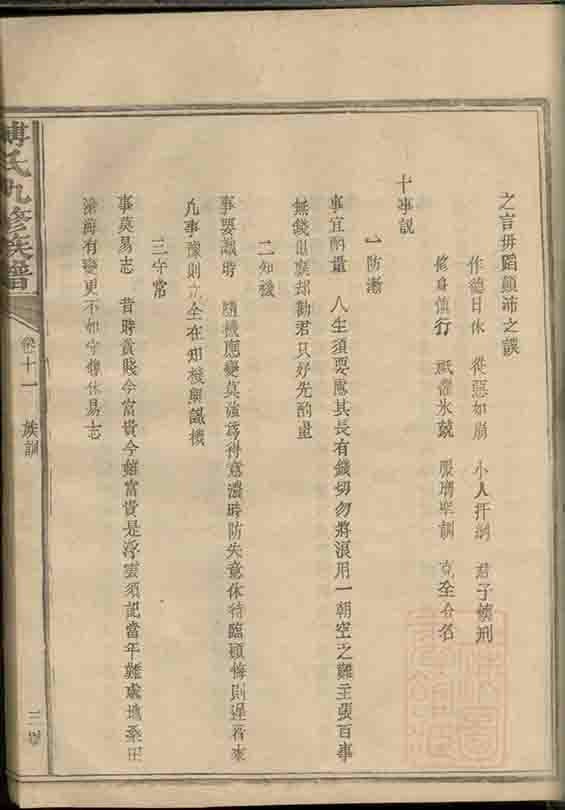 之言毋蹈顛沛之誤
作德日休 從惡如崩 小人扞網 君子懷刑
修身慎行 祗當氷兢 服膺聖訓 克全令名
十事説
一防漸
事宜酌量 人生須要慮其長有錢切勿將浪用一朝空乏難主張百事
無錢但廢却勸君只好先酌量
二知機
事要識時 隨機應變莫強爲得意濃時防失意休待臨頭悔則遲看來
凡事豫則立全在知機與識機
三守常
事莫易志 昔時貧賤今富貴今雖富貴是浮雲須記當年難處地桑田
滄海有變更不如守舊休易志
傅氏九修族譜
卷十一 族訓
三